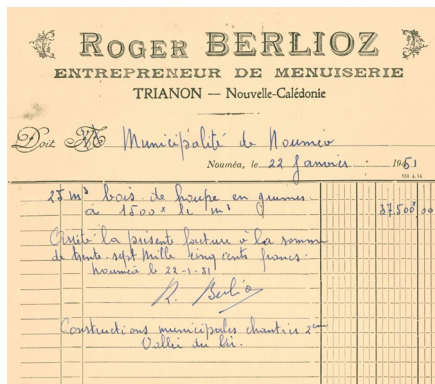 ROGER BERLIOZ
ENTREPRENEUR DE MENUISERIE
TRIANON — Nouvelle-Calédonie
Doit M Municipalité de Nouméa
Nouméa, le 22 Janvier 1951
25 m3 bois de houpe en grumes
à 1500 x le m3 37.500,00
Arrêté la présente facture à la somme
de trente-sept mille cinq cents francs.
Nouméa le 22-1-51
R. Berlioz
Constructions municipales chantier
Vallée du